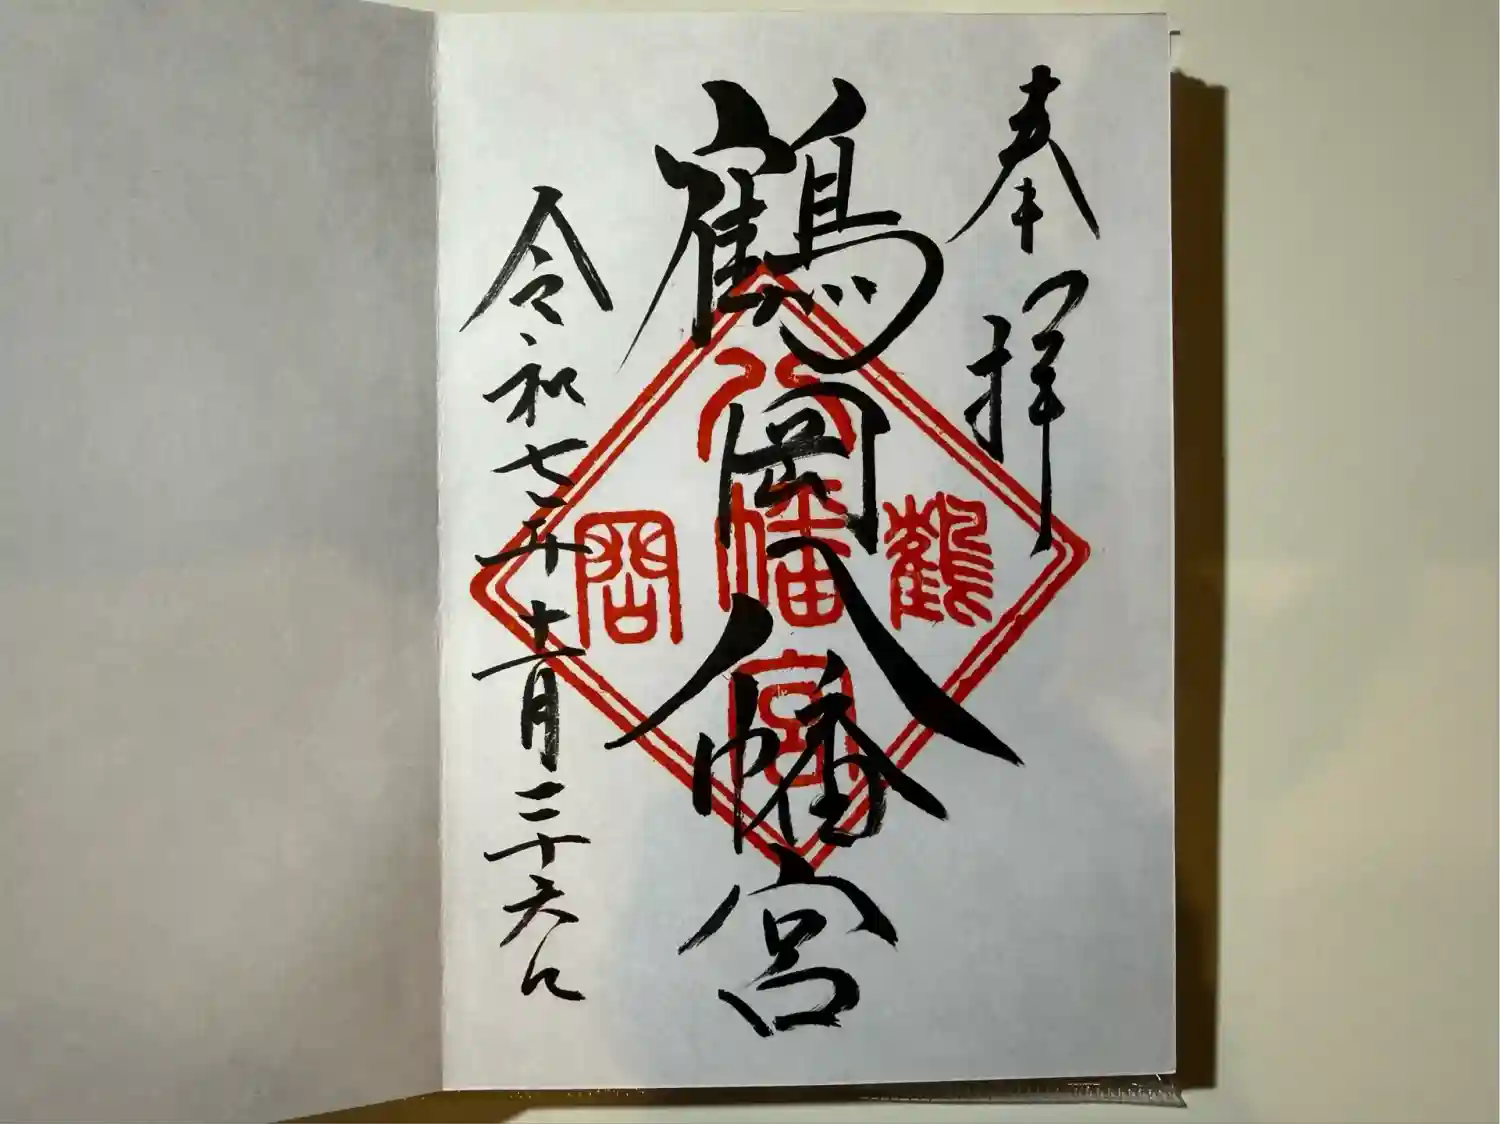 奉拝
鶴岡八幡宮
令和七年十一月二十六日
八幡宮
鶴
岡